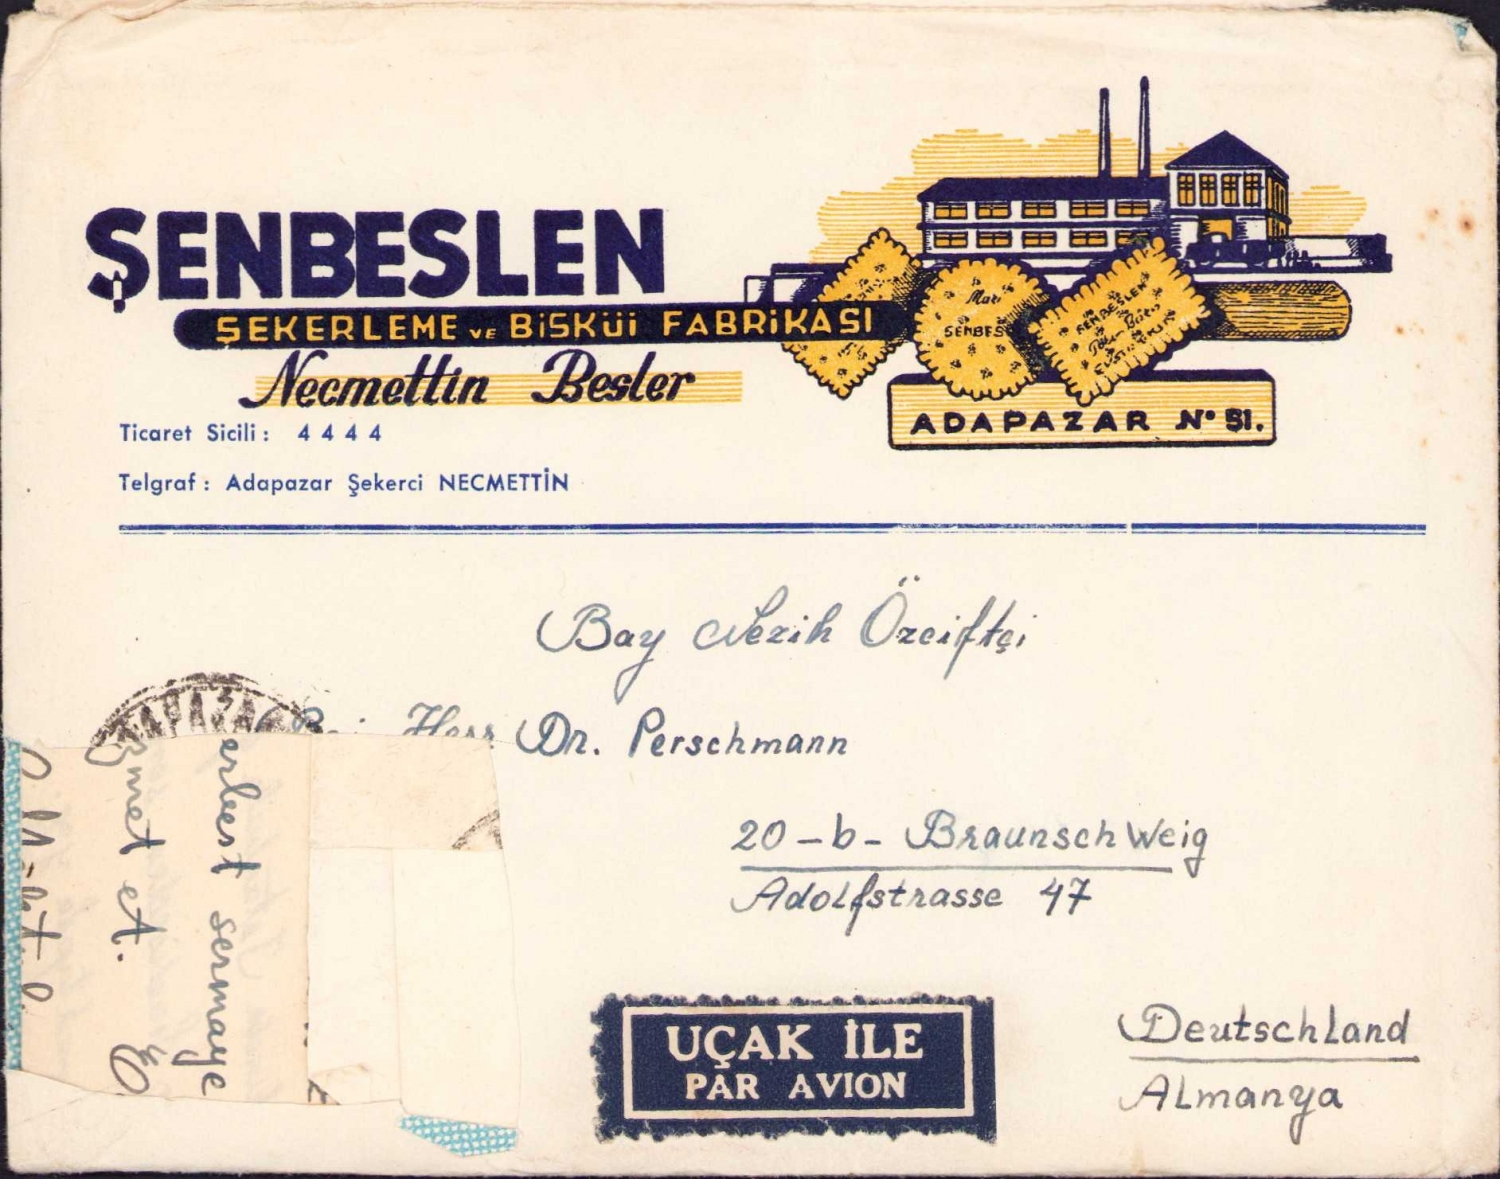 ŞENBESLEN
ŞEKERLEME VE BİSKÜİ FABRİKASI
Necmettin Besler
Ticaret Sicili : 4444
Telgraf : Adapazar Şekerci NECMETTİN
Mari
ŞENBES
ŞENBESLEN
ADAPAZAR Nº 51.
Bay Nezih Özçiftçi
Bei Herr Dr. Perschmann
20-b- Braunschweig
Adolfstrasse 47
Deutschland
Almanya
UÇAK İLE
PAR AVION
ADAPAZA
erbest sermaye
et.